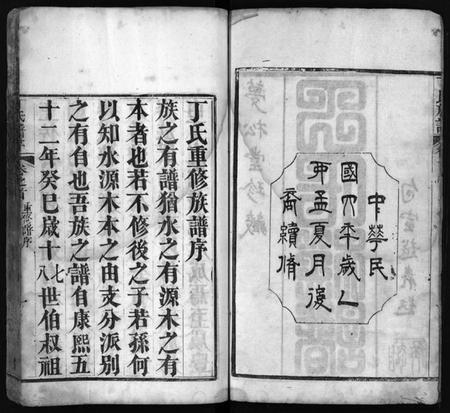 中華民
國四年歲乙
卯孟夏月後
裔續脩
夢松堂珍藏
丁氏重修族譜序
族之有譜猶水之有源木之有
本者也若不修後之子若孫何
以知水源木本之由支分派別
之有自也吾族之譜自康熙五
十二年癸巳歲十七八世伯叔祖
卷之首
譜序